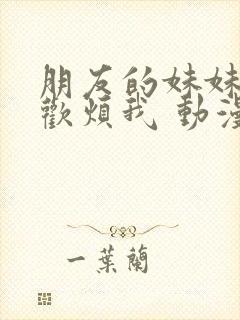 朋友的妹妹
歡煩我 動漫
一葉蘭